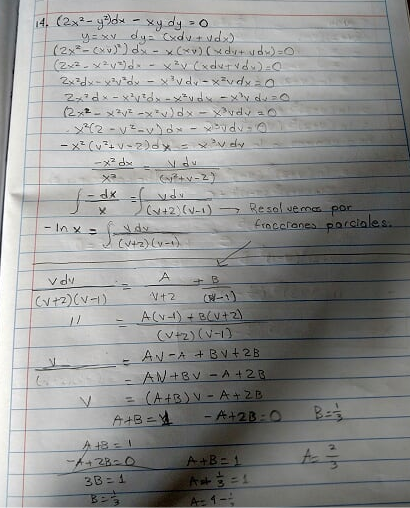 14. (2x² - y²)dx - xy dy = 0
y = xv dy = (xdv + vdx)
(2x² - (xv)²) dx - x(xv)(xdv + vdx) = 0
(2x² - x²v²) dx - x²v (xdv + vdx) = 0
2x²dx - x²v²dx - x³v dv - x²vdx = 0
2x²dx - x²v²dx - x²vdx - x³v dv = 0
(2x² - x²v² - x²v)dx - x³vdv = 0
x²(2 - v² - v)dx - x³vdv = 0
-x²(v² + v - 2)dx = x³v dv
-x²dx / x³ = v dv / (v² + v - 2)
∫ -dx / x = ∫ v dv / (v+2)(v-1) → Resolvemos por
-ln x = ∫ v dv / (v+2)(v-1) fracciones parciales.
v dv / (v+2)(v-1) = A / v+2 + B / (v-1)
'' = A(v-1) + B(v+2) / (v+2)(v-1)
v = Av - A + Bv + 2B
= Av + Bv - A + 2B
v = (A+B)v - A + 2B
A+B = 1 -A+2B = 0 B = 1/3
A+B = 1
-A+2B = 0 A+B = 1 A = 2/3
3B = 1 A + 1/3 = 1
B = 1/3 A = 1 - 1/3